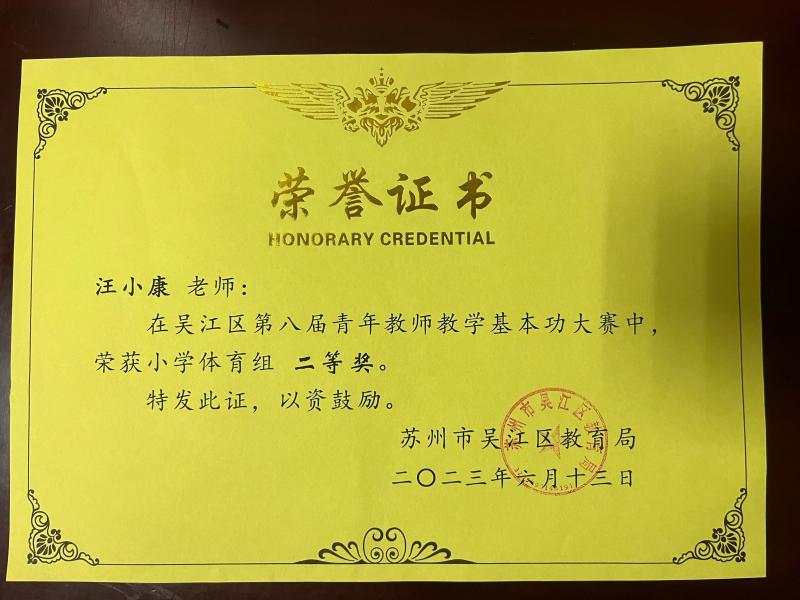 荣誉证书
HONORARY CREDENTIAL
汪小康 老师：
在吴江区第八届青年教师教学基本功大赛中，
荣获小学体育组 二等奖。
特发此证，以资鼓励。
苏州市吴江区教育局
二〇二三年六月十三日
苏州市吴江区教育局